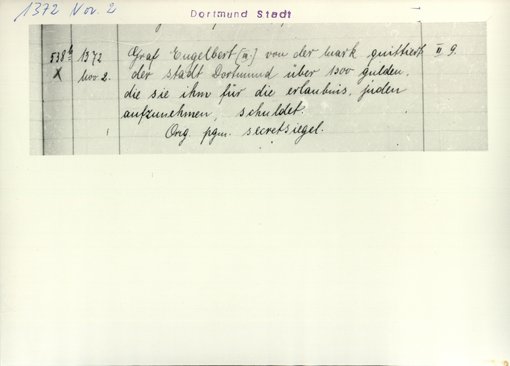 1372 Nov. 2
Dortmund Stadt
538b 1372 Graf Engelbert von der Mark quittiert II 9.
X Nov 2. der stadt Dortmund über 1300 gulden,
die sie ihm für die erlaubnis, juden
aufzunehmen, schuldet.
Orig. pgm. secretsiegel.